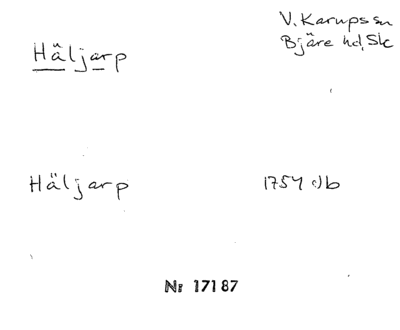 Häljarp
V. Karups sn
Bjäre hd, Sk
Häljarp
1754 db
Nr 17187